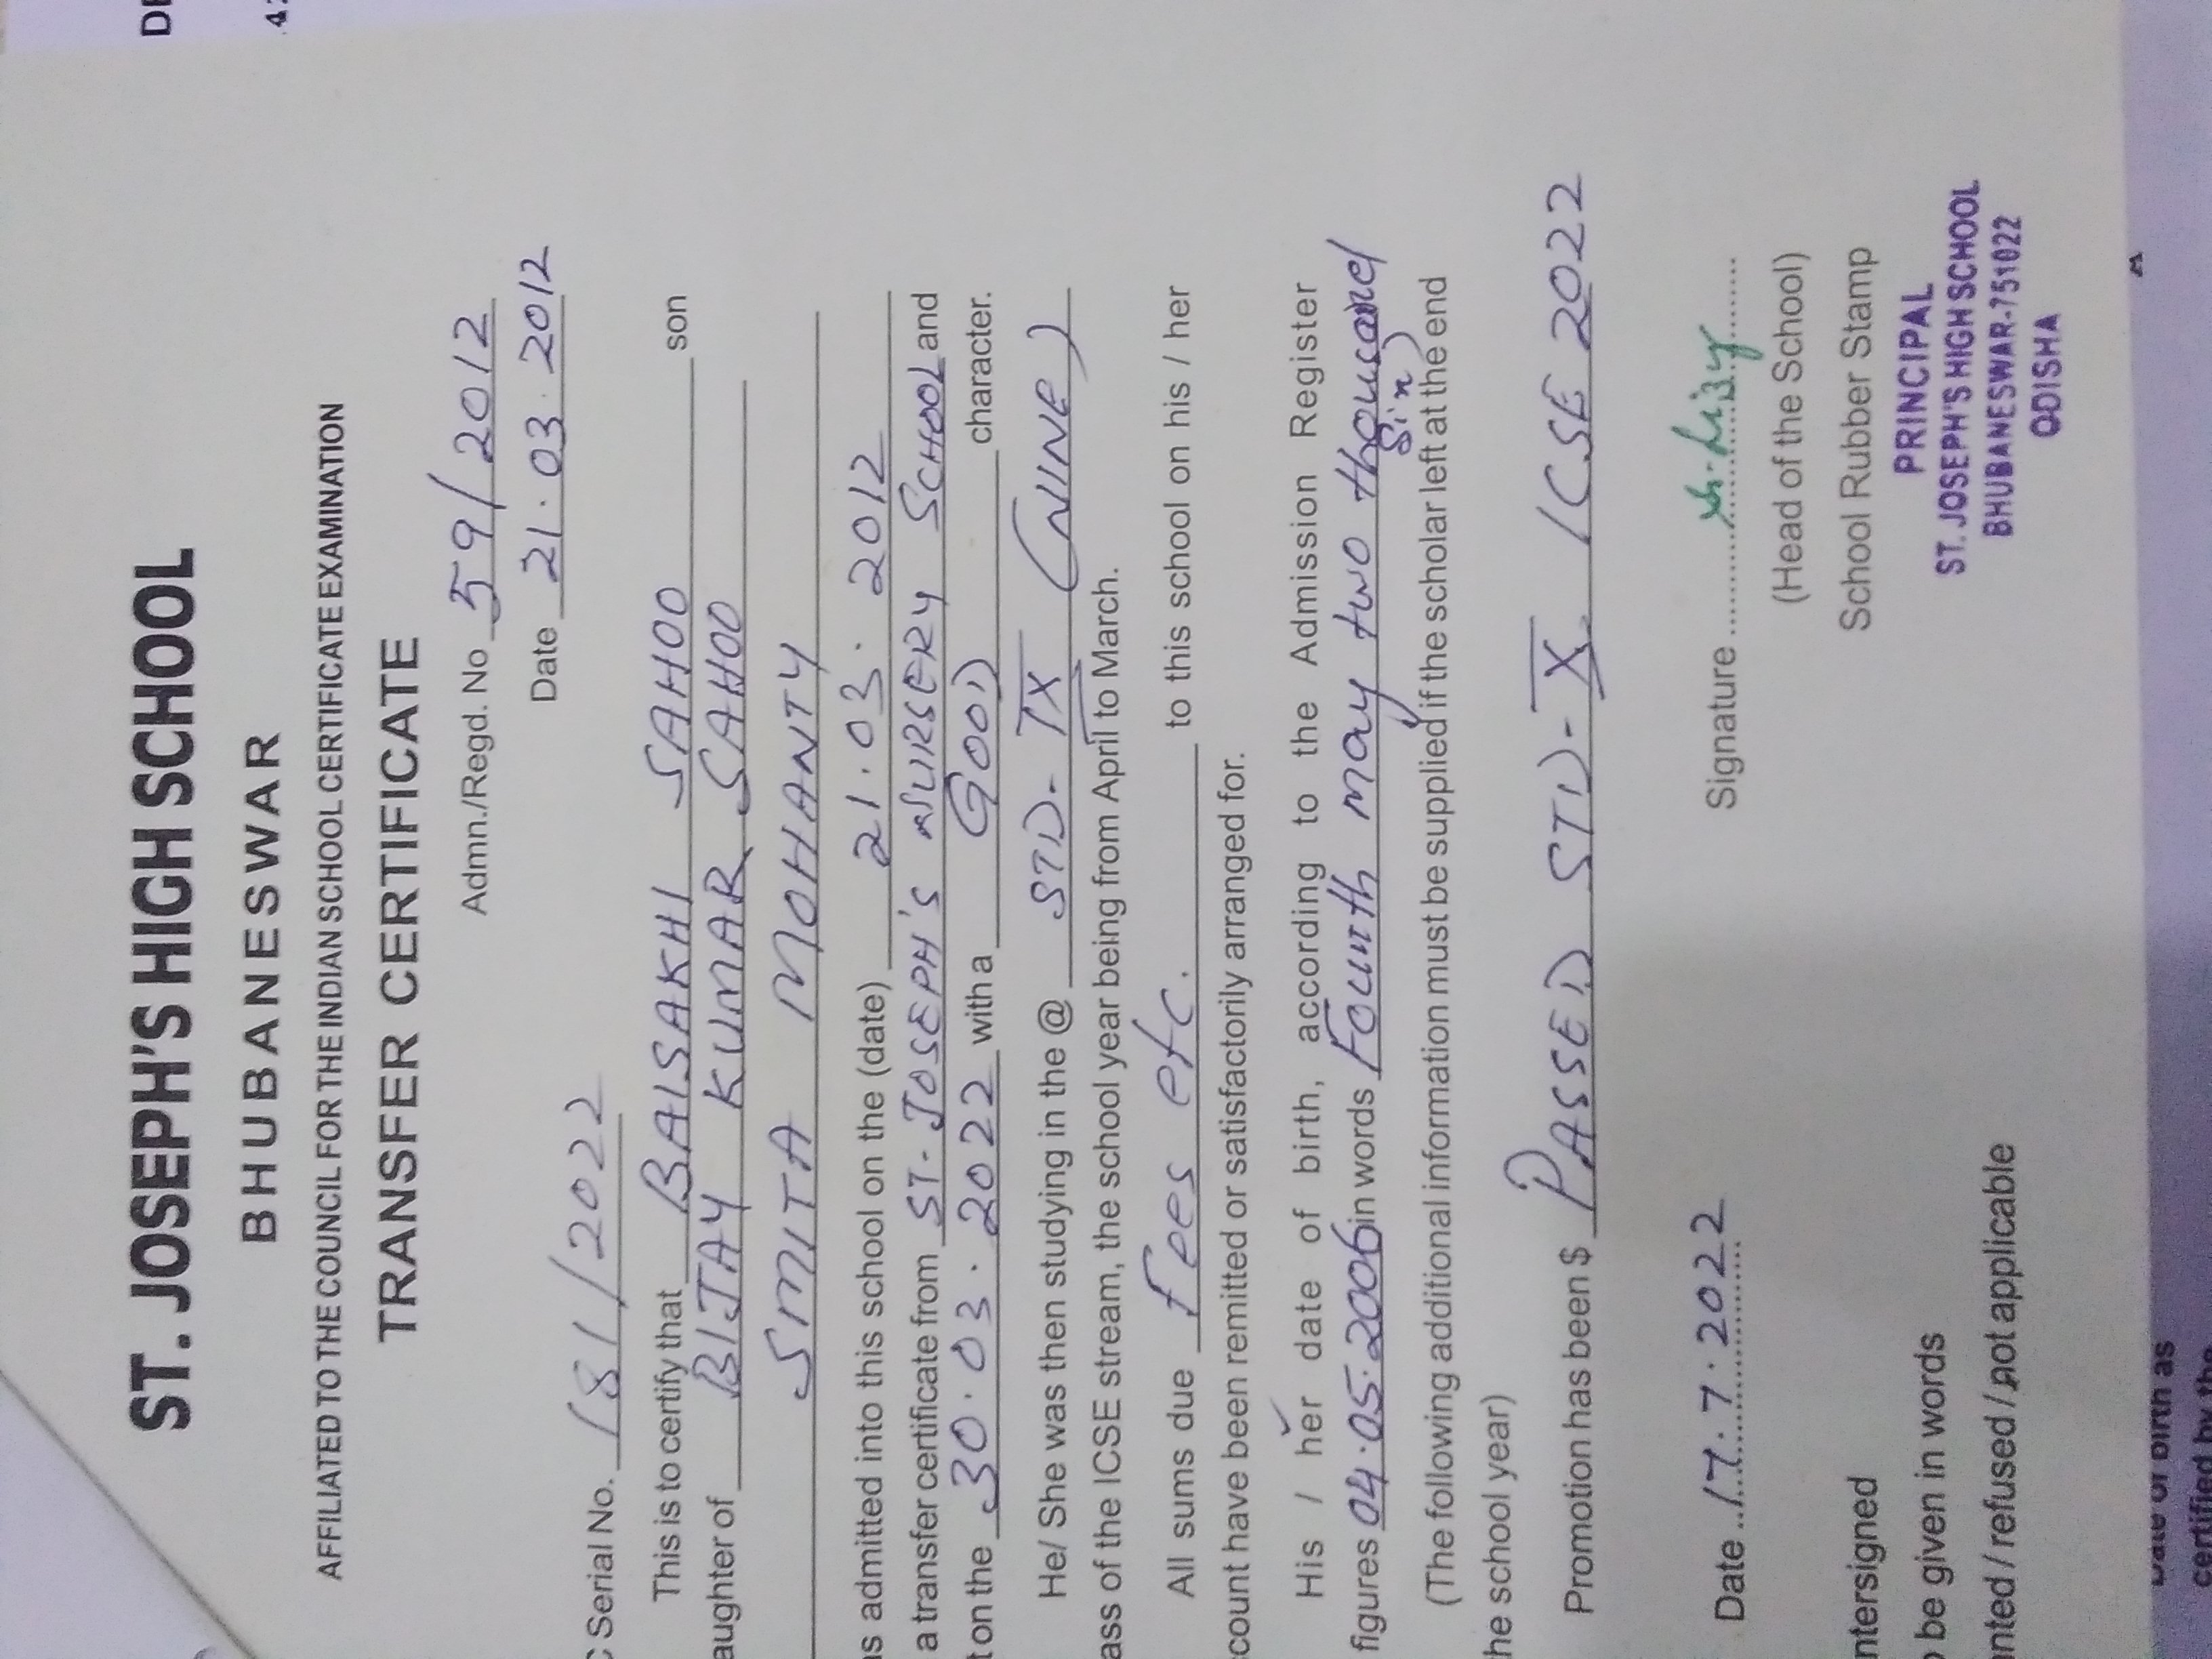 ST. JOSEPH'S HIGH SCHOOL
BHUBANESWAR
AFFILIATED TO THE COUNCIL FOR THE INDIAN SCHOOL CERTIFICATE EXAMINATION
TRANSFER CERTIFICATE
Admn./Regd. No 59/2012
Date 21.03.2012
C Serial No. 181/2022
This is to certify that BAISAKHI SAHOO son
aughter of BIJAY KUMAR SAHOO
SMITA MOHANTY
as admitted into this school on the (date) 21.03.2012
a transfer certificate from ST. JOSEPH'S NURSERY SCHOOL and
t on the 30.03.2022 with a GOOD character.
He/ She was then studying in the @ STD- IX (NINE)
ass of the ICSE stream, the school year being from April to March.
All sums due Fees etc. to this school on his / her
count have been remitted or satisfactorily arranged for.
His / her date of birth, according to the Admission Register
figures 04.05.2006 in words Fourth may two thousand
six)
(The following additional information must be supplied if the scholar left at the end
he school year)
Promotion has been $ PASSED STD-X. ICSE 2022
Date 17.7.2022 Signature
(Head of the School)
ntersigned School Rubber Stamp
be given in words
anted / refused / not applicable
PRINCIPAL
ST. JOSEPH'S HIGH SCHOOL
BHUBANESWAR-751022
ODISHA
Date of birth as
certified by the